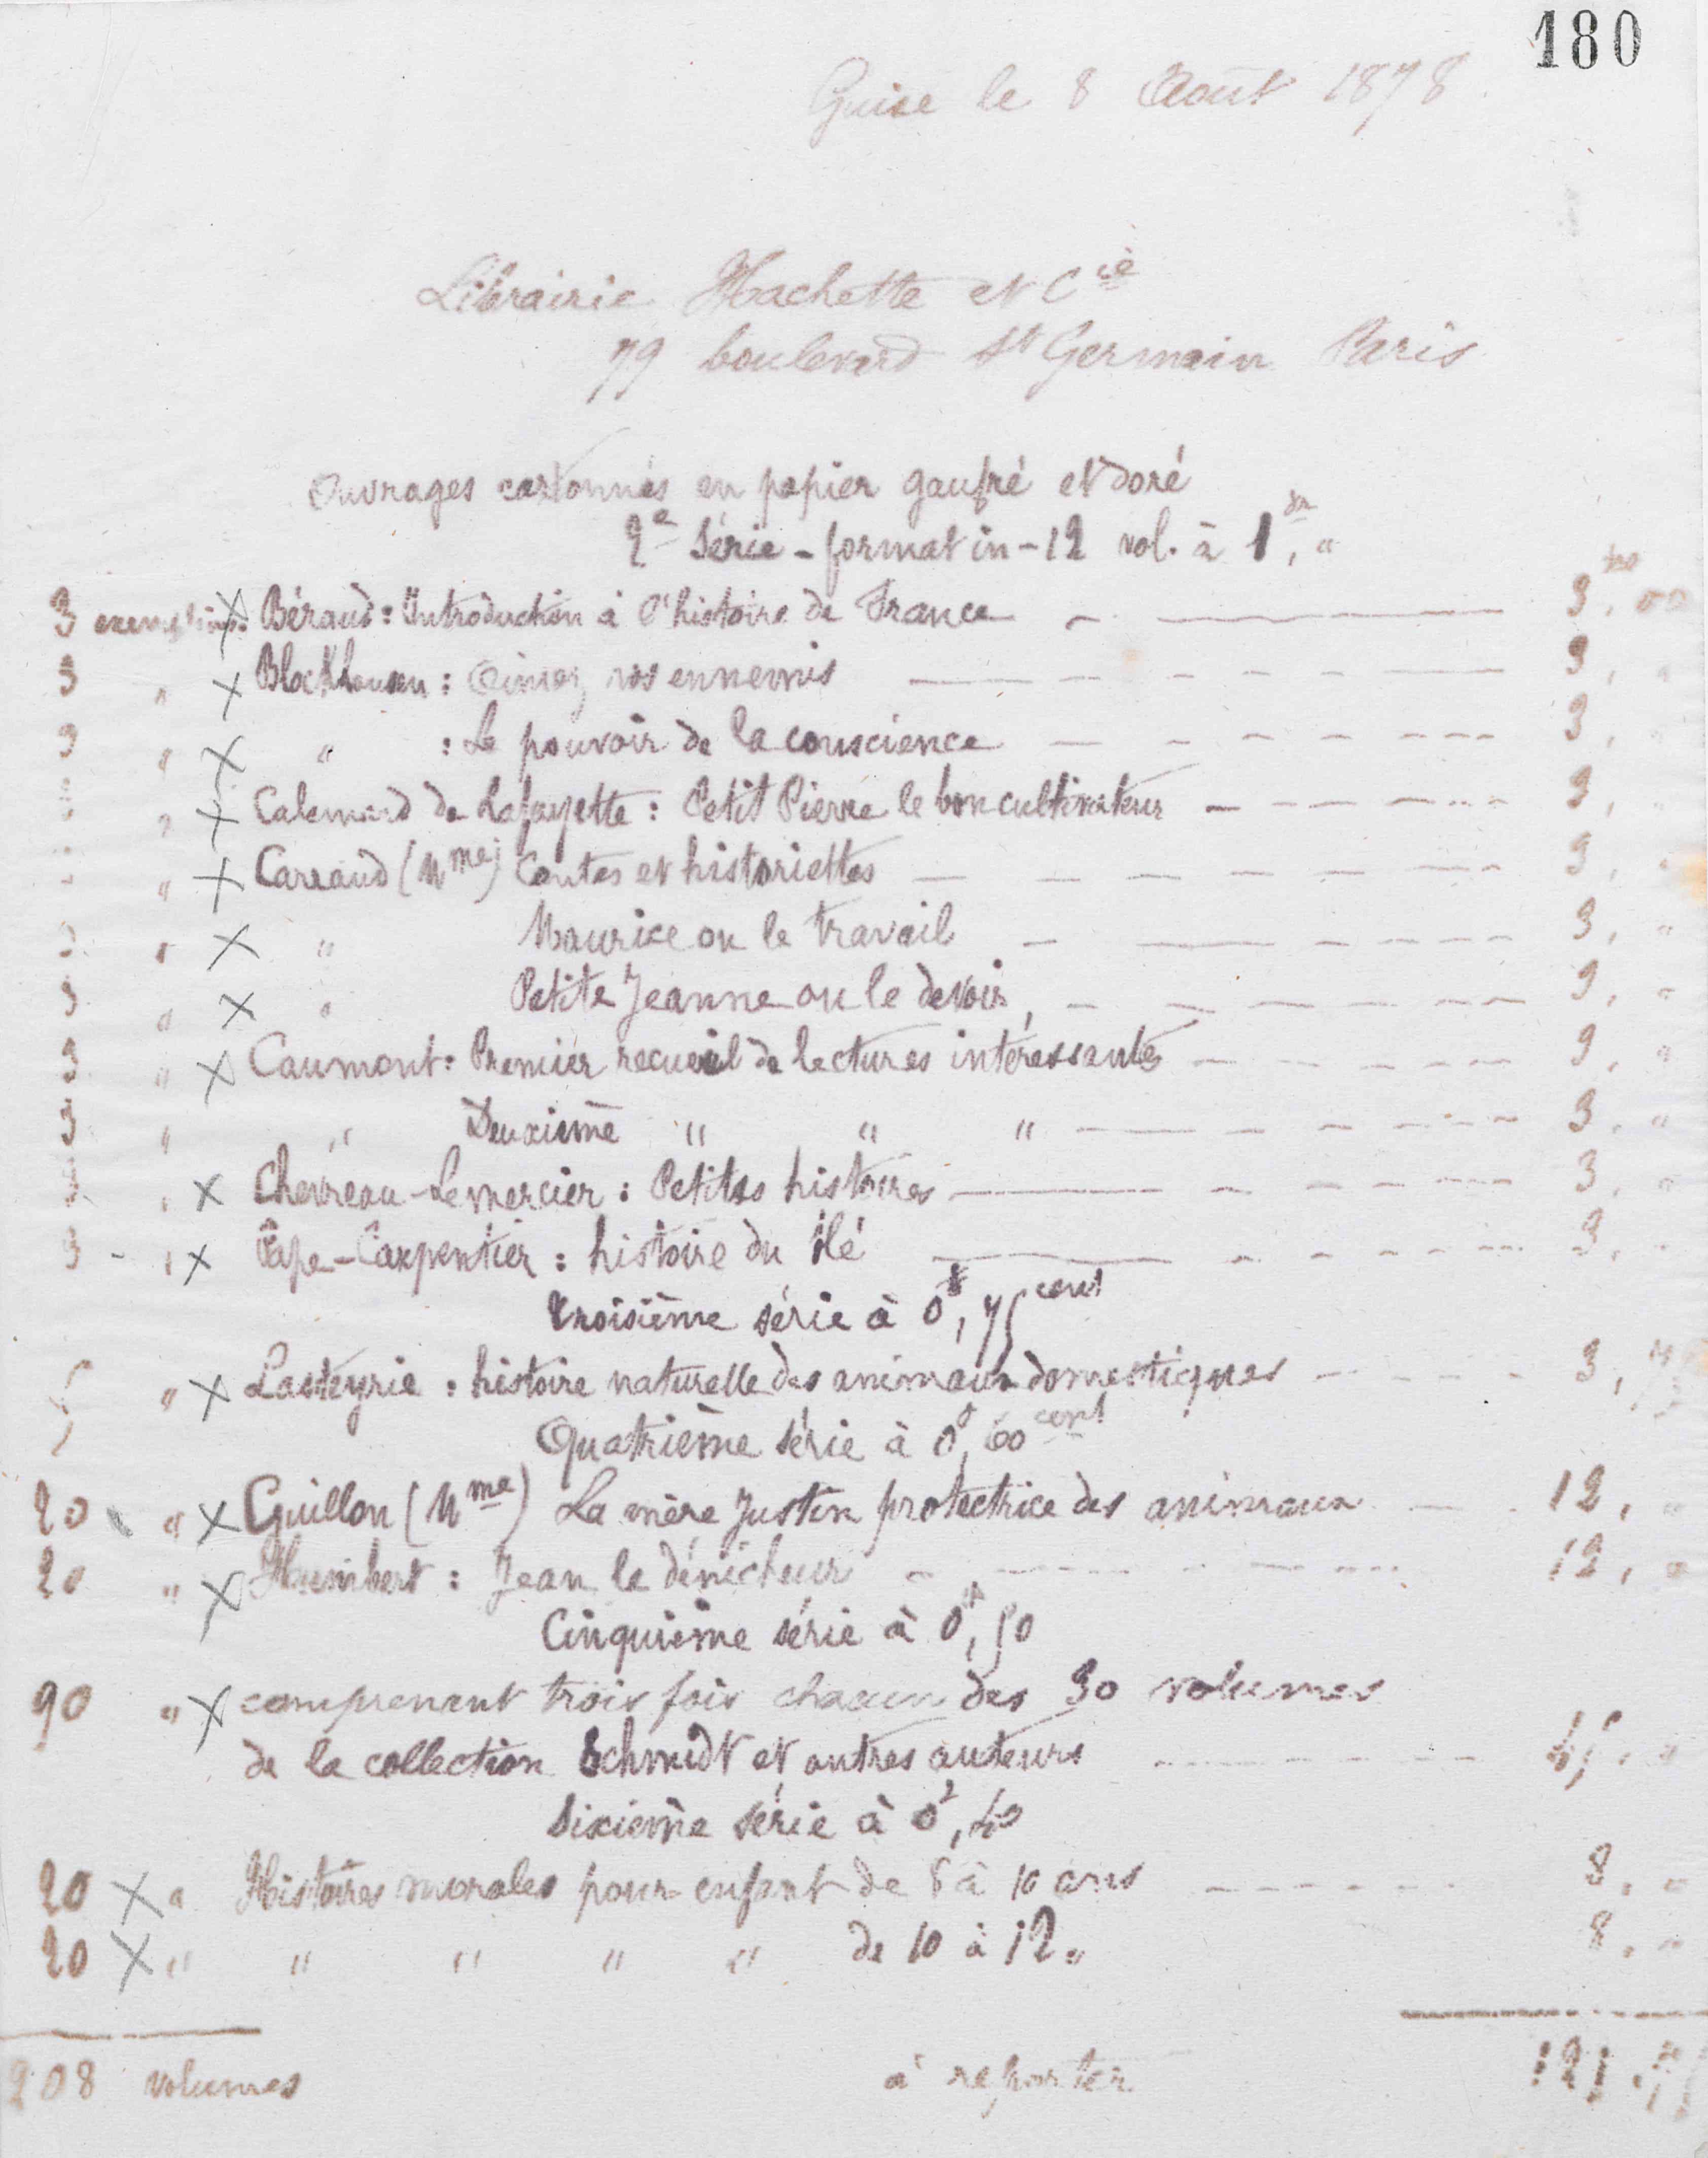 180
Guise le 8 Août 1878
Librairie Hachette et Cie
79 boulevard St Germain Paris
Ouvrages cartonnés en papier gaufré et doré
2e Série - format in-12 vol. à 1fr, "
3 exemplaires X Béraud : Introduction à l'histoire de France — 3, 00
3 " X Blockhausen : Aimez vos ennemis — 3, "
3 " X " : Le pouvoir de la conscience — 3, "
" X Calemard de Lafayette : Petit Pierre le bon cultivateur — 3, "
" X Carraud (Mme) Contes et historiettes — 3, "
3 " X " Maurice ou le travail — 3, "
3 " X " Petite Jeanne ou le devoir, — 3, "
3 " X Caumont : Premier recueil de lectures intéressantes — 3, "
3 " " Deuxième " " " — 3, "
3 " X Chevreau-Lemercier : Petites histoires — 3, "
3 - " X Pape-Carpentier : histoire du blé — 3, "
Troisième série à 0f, 75 cent
5 " X Lasteyrie : histoire naturelle des animaux domestiques — 3, 75
Quatrième série à 0f, 60 cent
20 " X Guillon (Mme) La mère Justin protectrice des animaux — 12, "
20 " X Humbert : Jean le dénicheur — 12, "
Cinquième série à 0f, 50
90 " X comprenant trois fois chacun des 30 volumes
de la collection Schmidt et autres auteurs — 45, "
Sixième série à 0f, 40
20 X " Histoires morales pour enfant de 8 à 10 ans — 8, "
20 X " " " " " de 10 à 12 " 8, "
208 volumes à reporter 121, 75